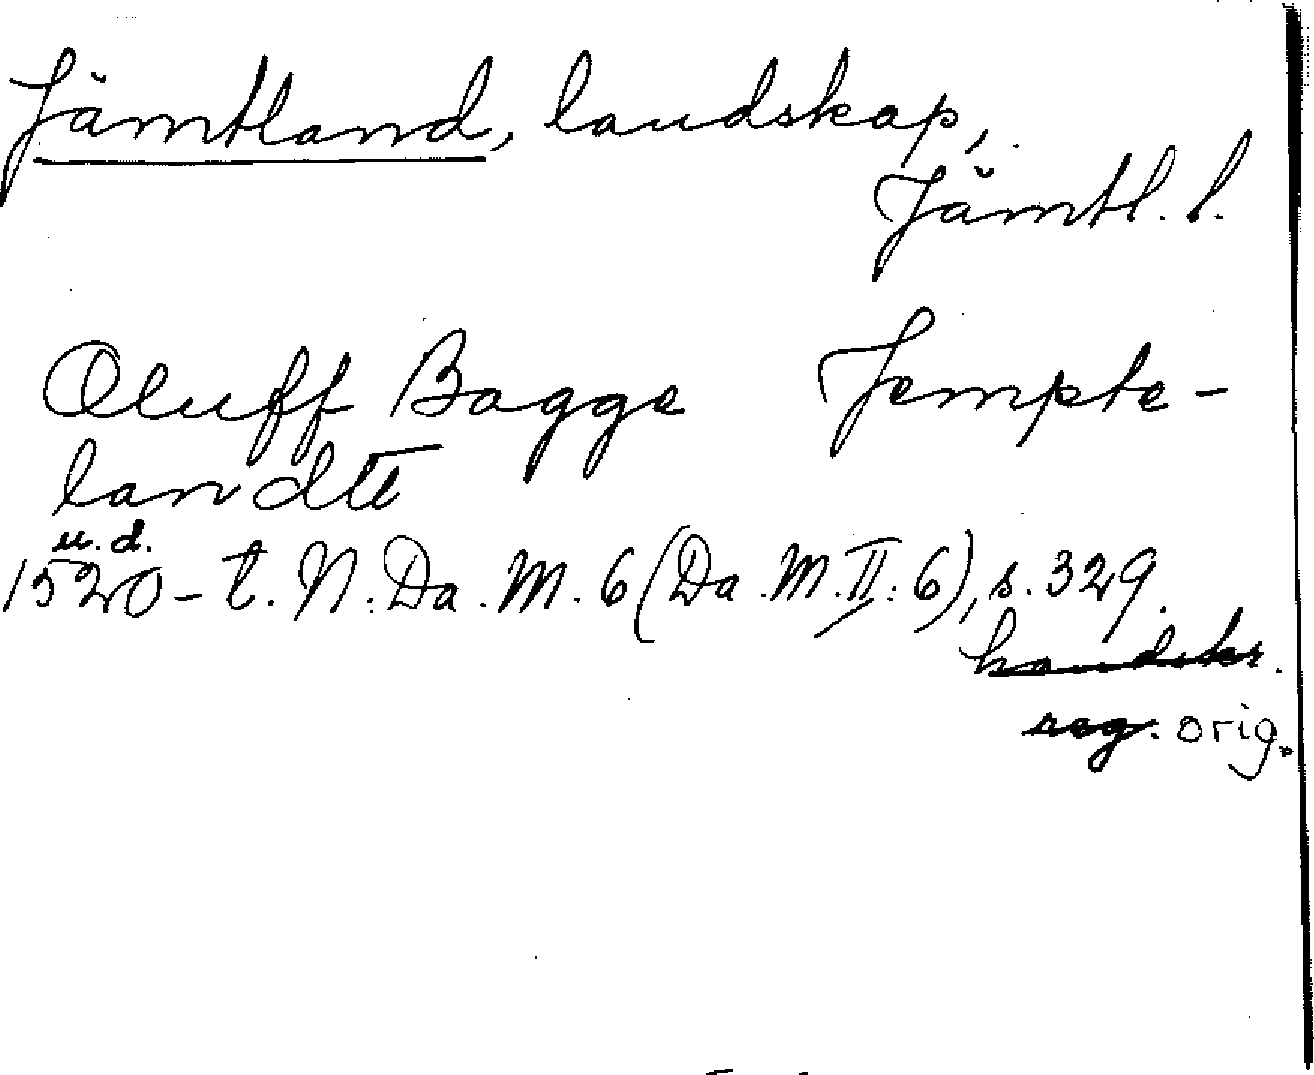 Jämtland, landskap,
Jämtl. l.
Oluff Bagge Jempte-
landtt
u. d.
1520-t. N. Da. M. 6 (Da. M. II: 6), s. 329.
handskr.
reg. orig.